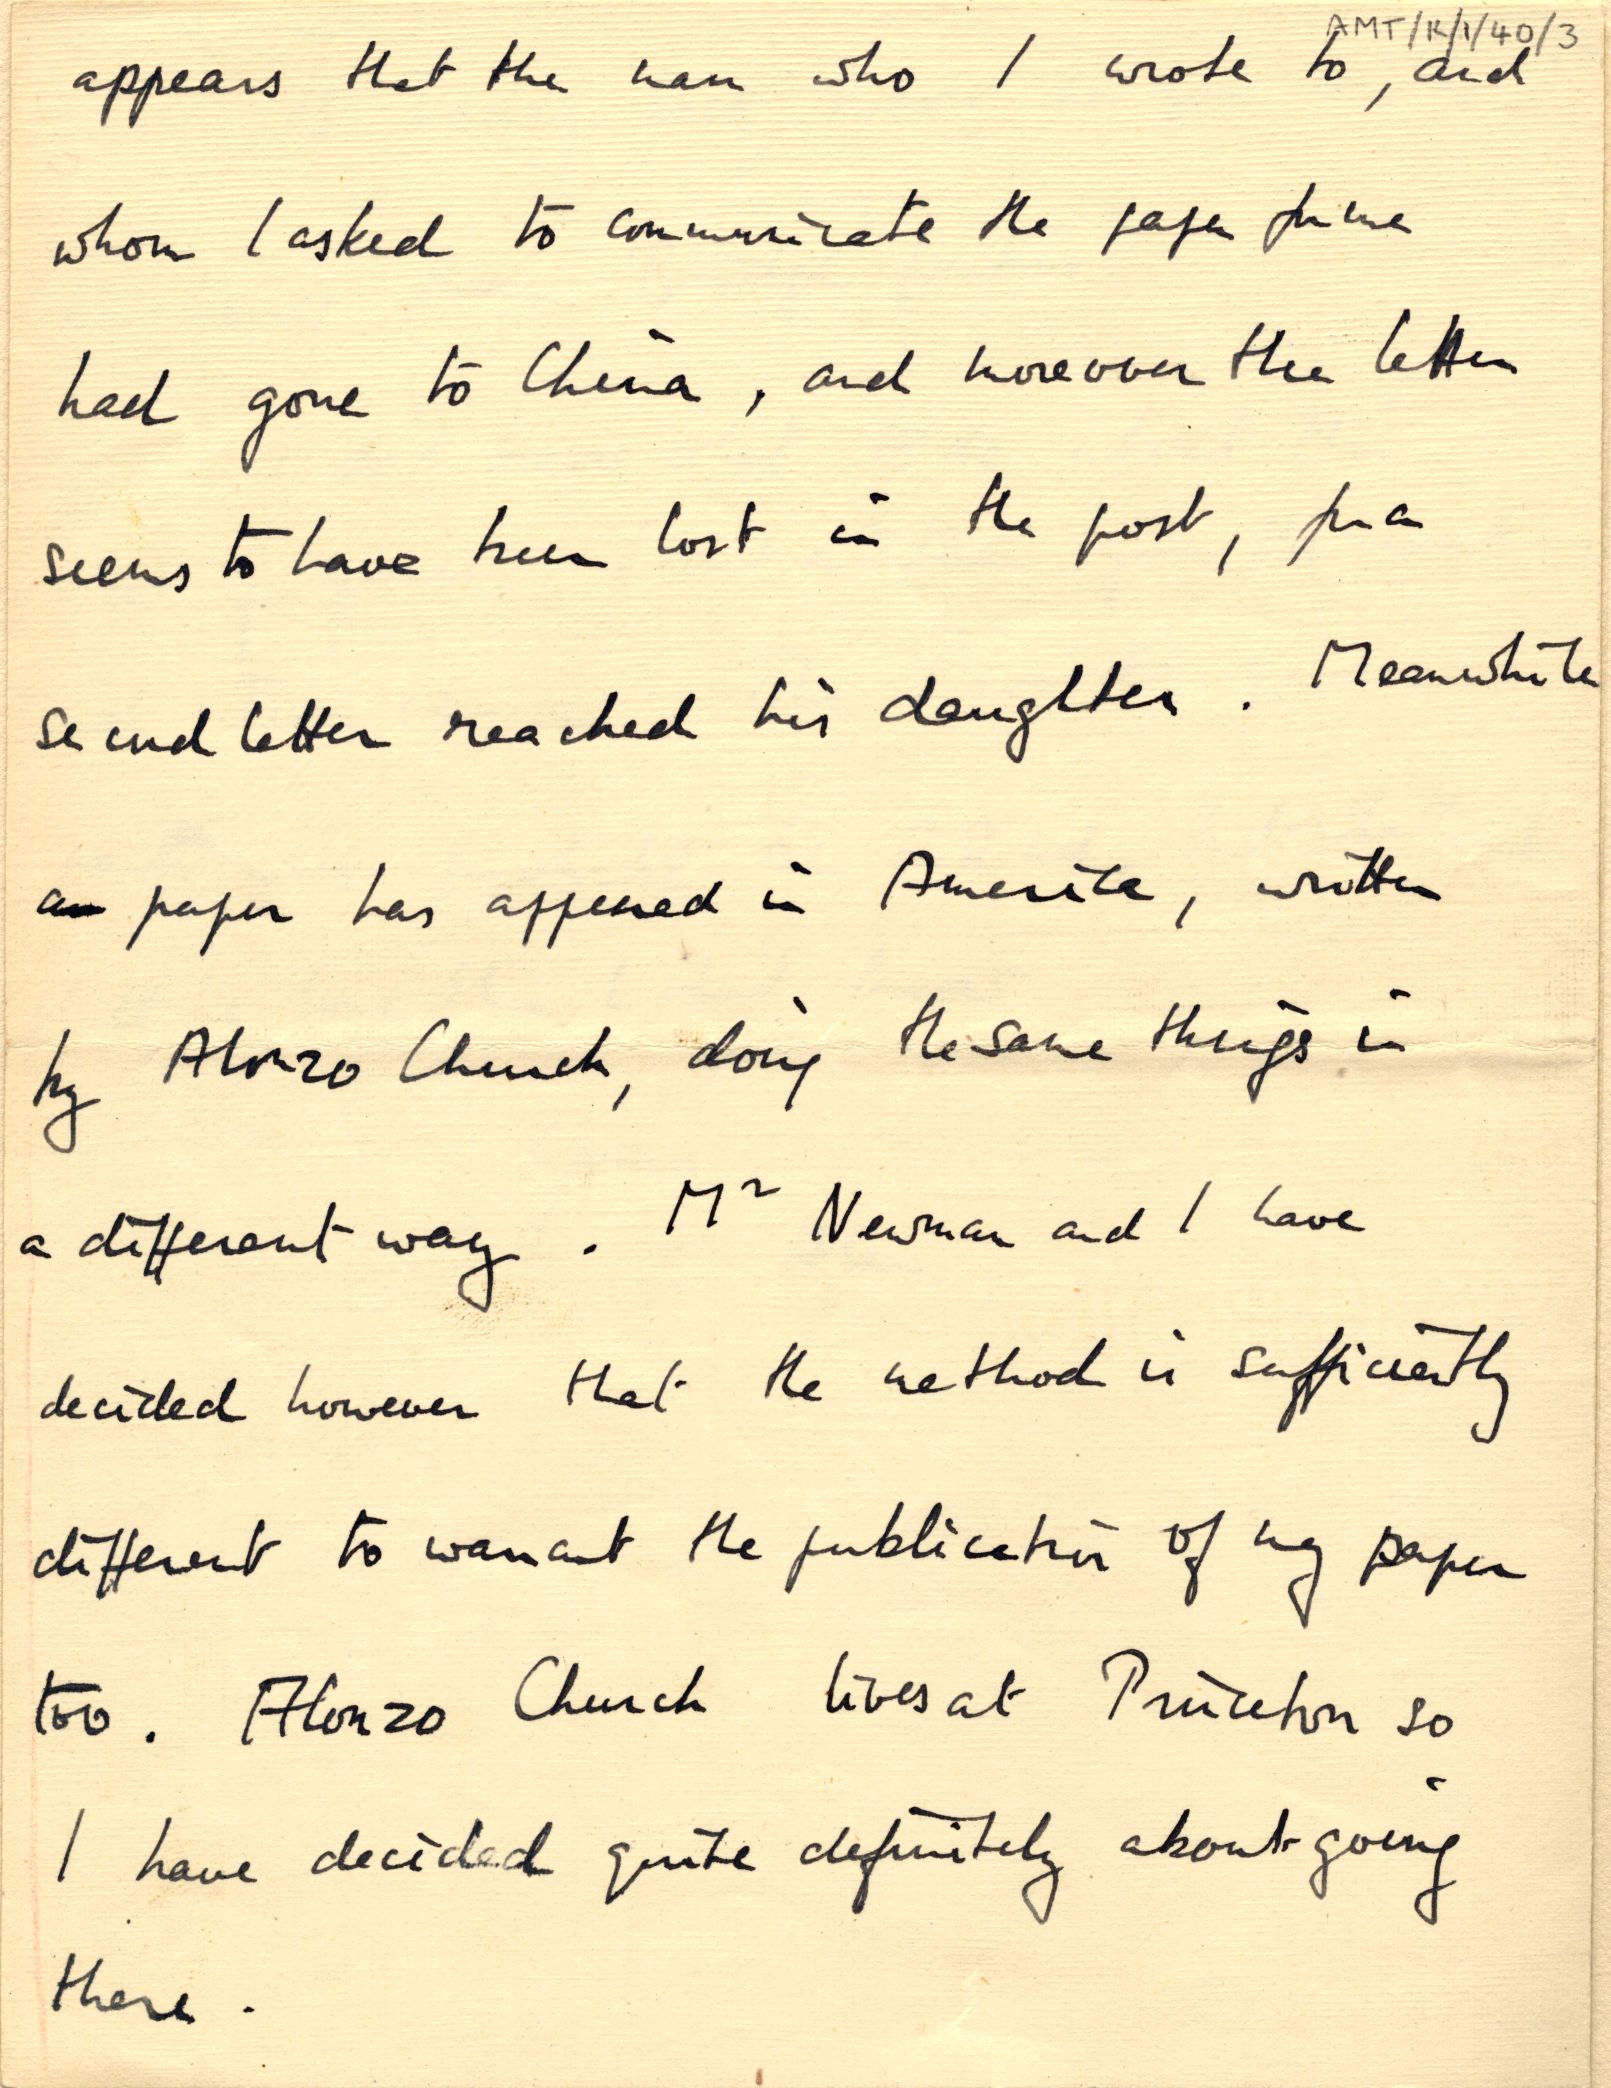 AMT/K/1/40/3
appears that the man who I wrote to, and
whom I asked to communicate the paper for me
had gone to China, and moreover the letter
seems to have been lost in the post, for a
second letter reached his daughter. Meanwhile
a paper has appeared in America, written
by Alonzo Church, doing the same things in
a different way. Mr Newman and I have
decided however that the method is sufficiently
different to warrant the publication of my paper
too. Alonzo Church lives at Princeton so
I have decided quite definitely about going
there.